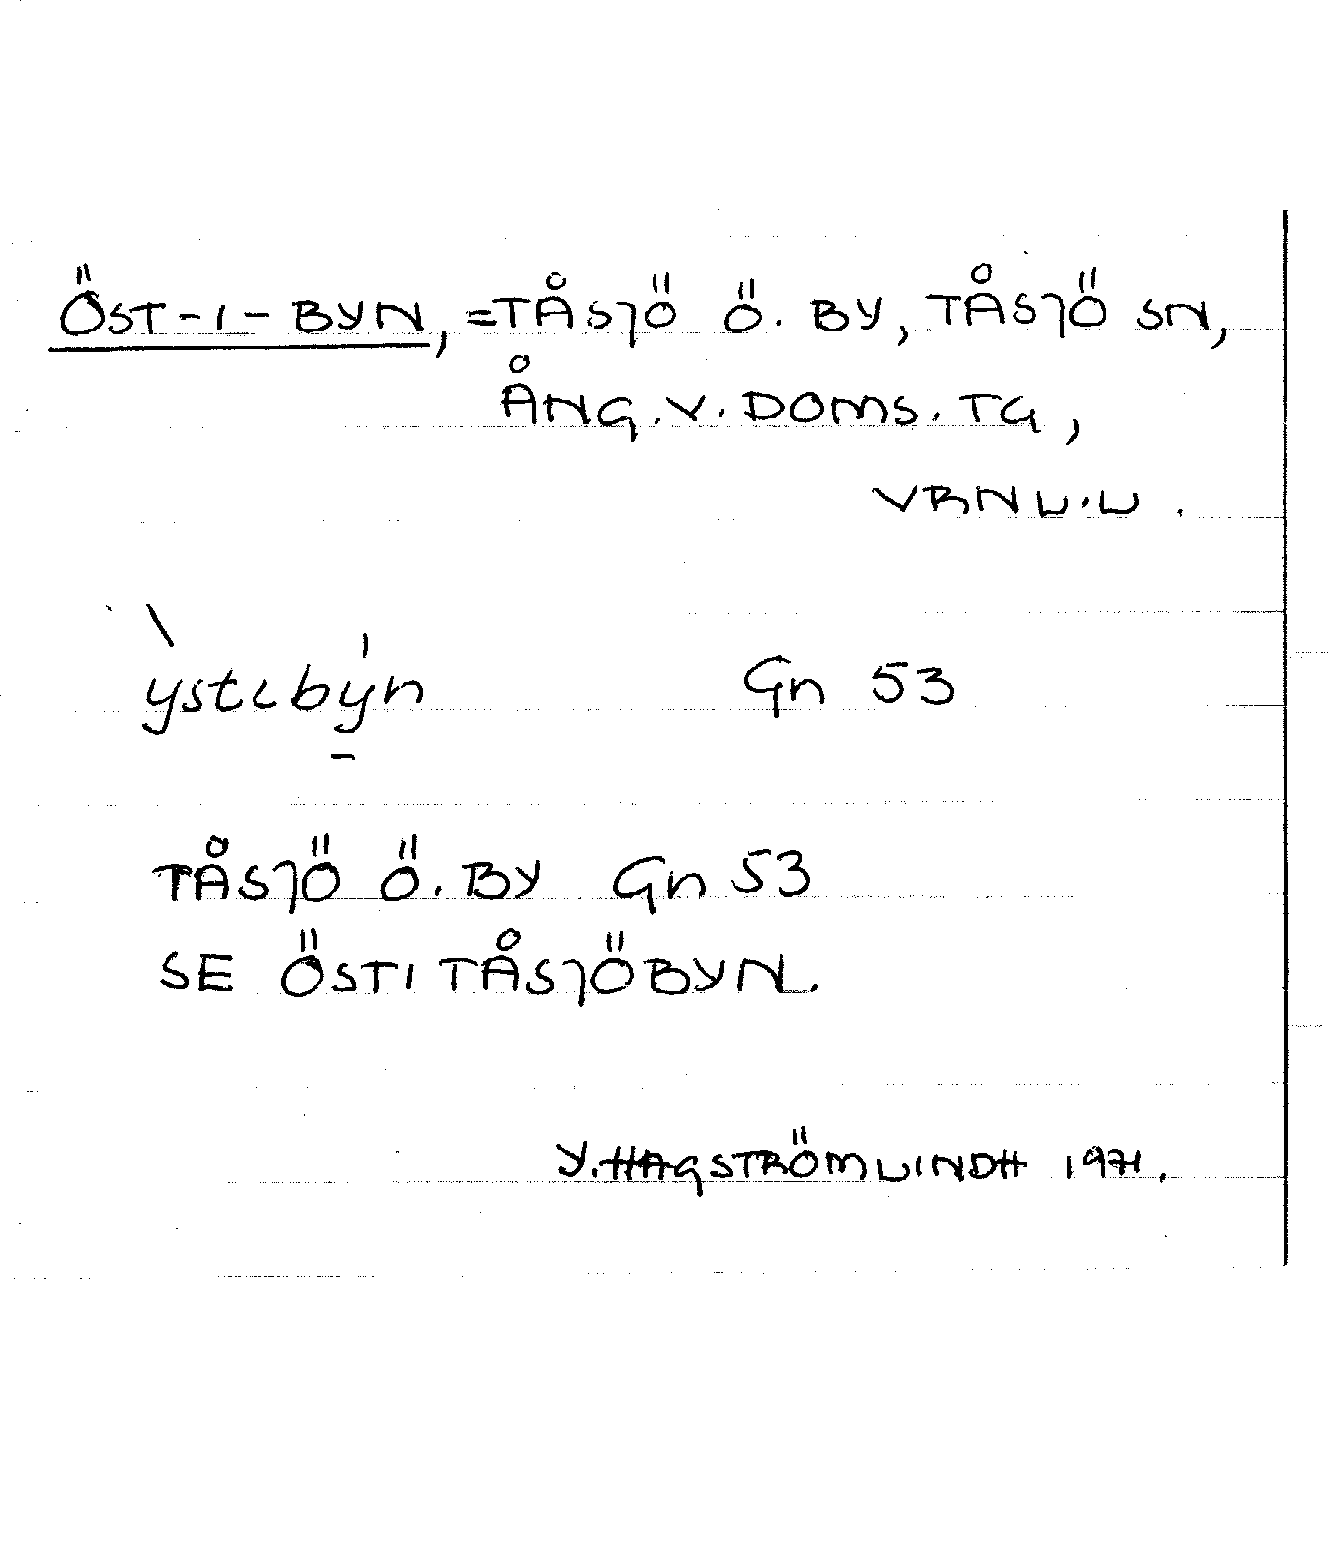 ÖST-I-BYN, =TÅSJÖ Ö. BY, TÅSJÖ SN,
ÅNG.V.DOMS.TG,
VRNL.L.
ỳstɩbýn Gn 53
TÅSJÖ Ö.BY Gn 53
SE ÖSTI TÅSJÖBYN.
Y.HAGSTRÖM LINDH 1971.